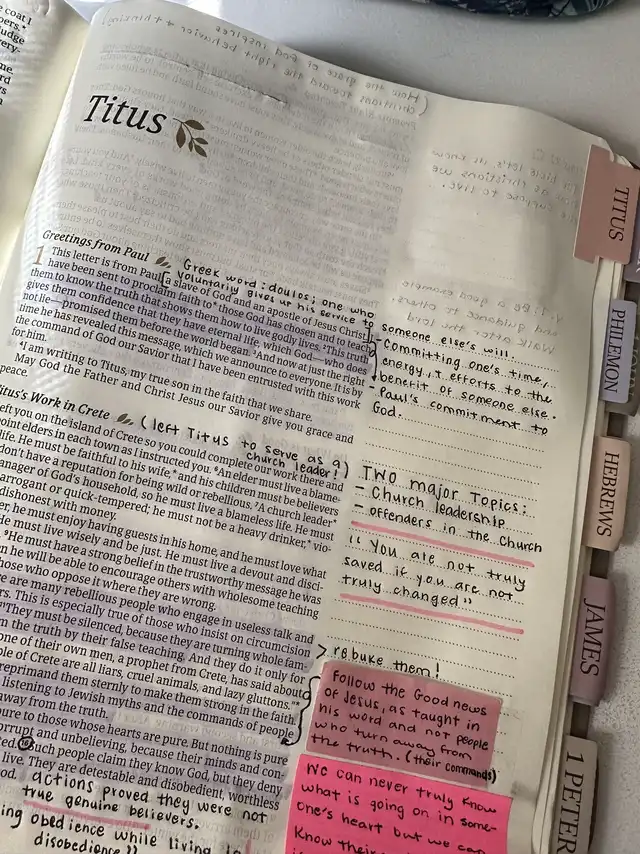 Titus
Greetings from Paul
Greek word: doulos; one who
voluntarily gives up his service to
someone else's will.
1 This letter is from Paul, a slave of God and an apostle of Jesus Christ. I
have been sent to proclaim faith to* those God has chosen and to teach
them to know the truth that shows them how to live godly lives. ²This truth
gives them confidence that they have eternal life, which God—who does
not lie—promised them before the world began. ³And now at just the right
time he has revealed this message, which we announce to everyone. It is by
the command of God our Savior that I have been entrusted with this work
for him.
⁴I am writing to Titus, my true son in the faith that we share.
May God the Father and Christ Jesus our Savior give you grace and
peace.
- Committing one's time,
energy, + efforts to the
benefit of someone else.
- Paul's commitment to
God.
Titus's Work in Crete
(left Titus to serve as a
church leader!)
left you on the island of Crete so you could complete our work there and
point elders in each town as I instructed you. ⁶An elder must live a blame-
life. He must be faithful to his wife,* and his children must be believers
don't have a reputation for being wild or rebellious. ⁷A church leader*
manager of God's household, so he must live a blameless life. He must
arrogant or quick-tempered; he must not be a heavy drinker,* vio-
dishonest with money.
er, he must enjoy having guests in his home, and he must love what
He must live wisely and be just. He must live a devout and disci-
⁹He must have a strong belief in the trustworthy message he was
n he will be able to encourage others with wholesome teaching
hose who oppose it where they are wrong.
re are many rebellious people who engage in useless talk and
ers. This is especially true of those who insist on circumcision
They must be silenced, because they are turning whole fam-
m the truth by their false teaching. And they do it only for
one of their own men, a prophet from Crete, has said about
ple of Crete are all liars, cruel animals, and lazy gluttons."*
reprimand them sternly to make them strong in the faith.
listening to Jewish myths and the commands of people
away from the truth.
pure to those whose hearts are pure. But nothing is pure
orrupt and unbelieving, because their minds and con-
ted. Such people claim they know God, but they deny
live. They are detestable and disobedient, worthless
od.
actions proved they were not
true genuine believers.
ing obedience while living in
disobedience"
TWO major Topics:
- Church leadership
- offenders in the Church
"You are not truly
saved if you are not
truly changed"
> rebuke them!
Follow the Good news
of Jesus, as taught in
his word and not people
who turn away from
the truth. (their commands)
We can never truly know
what is going on in some-
one's heart but we can
Know their
TITUS
PHILEMON
HEBREWS
JAMES
1 PETER